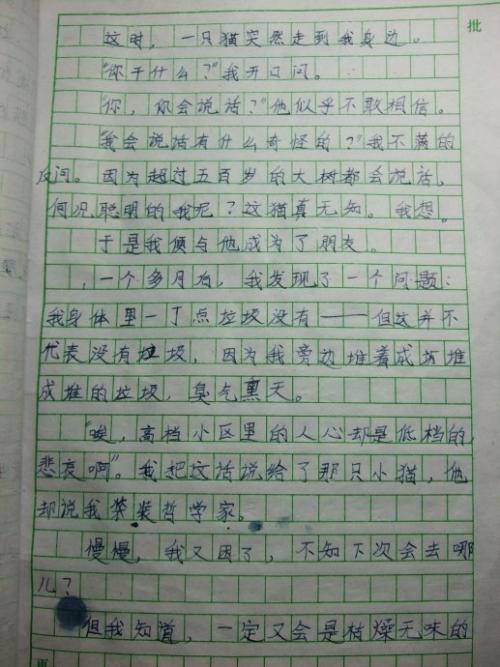 批
这时，一只猫突然走到我身边。
“你干什么？”我开口问。
“你，你会说话？”他似乎不敢相信。
“我会说话有什么奇怪的？”我不满的
反问。因为超过五百岁的大树都会说话，
何况聪明的我呢？这猫真无知。我想。
于是我便与他成为了朋友。
，一个多月后，我发现了一个问题：
我身体里一丁点垃圾没有——但这并不
代表没有垃圾，因为我旁边堆着成堆
成堆的垃圾，臭气熏天。
“唉，高档小区里的人心却是低档的，
悲哀啊”。我把这话说给了那只小猫，他
却说我装哲学家。
慢慢，我又困了，不知下次会去哪
儿？
但我知道，一定又会是枯燥无味的